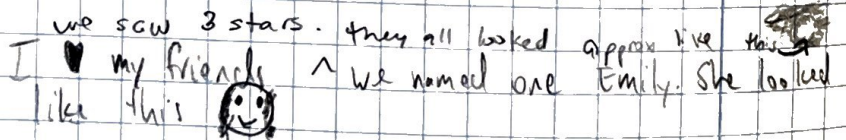 we saw 3 stars. they all looked approx like this
I ♥ my friends ^ we named one Emily. She looked
like this ☺